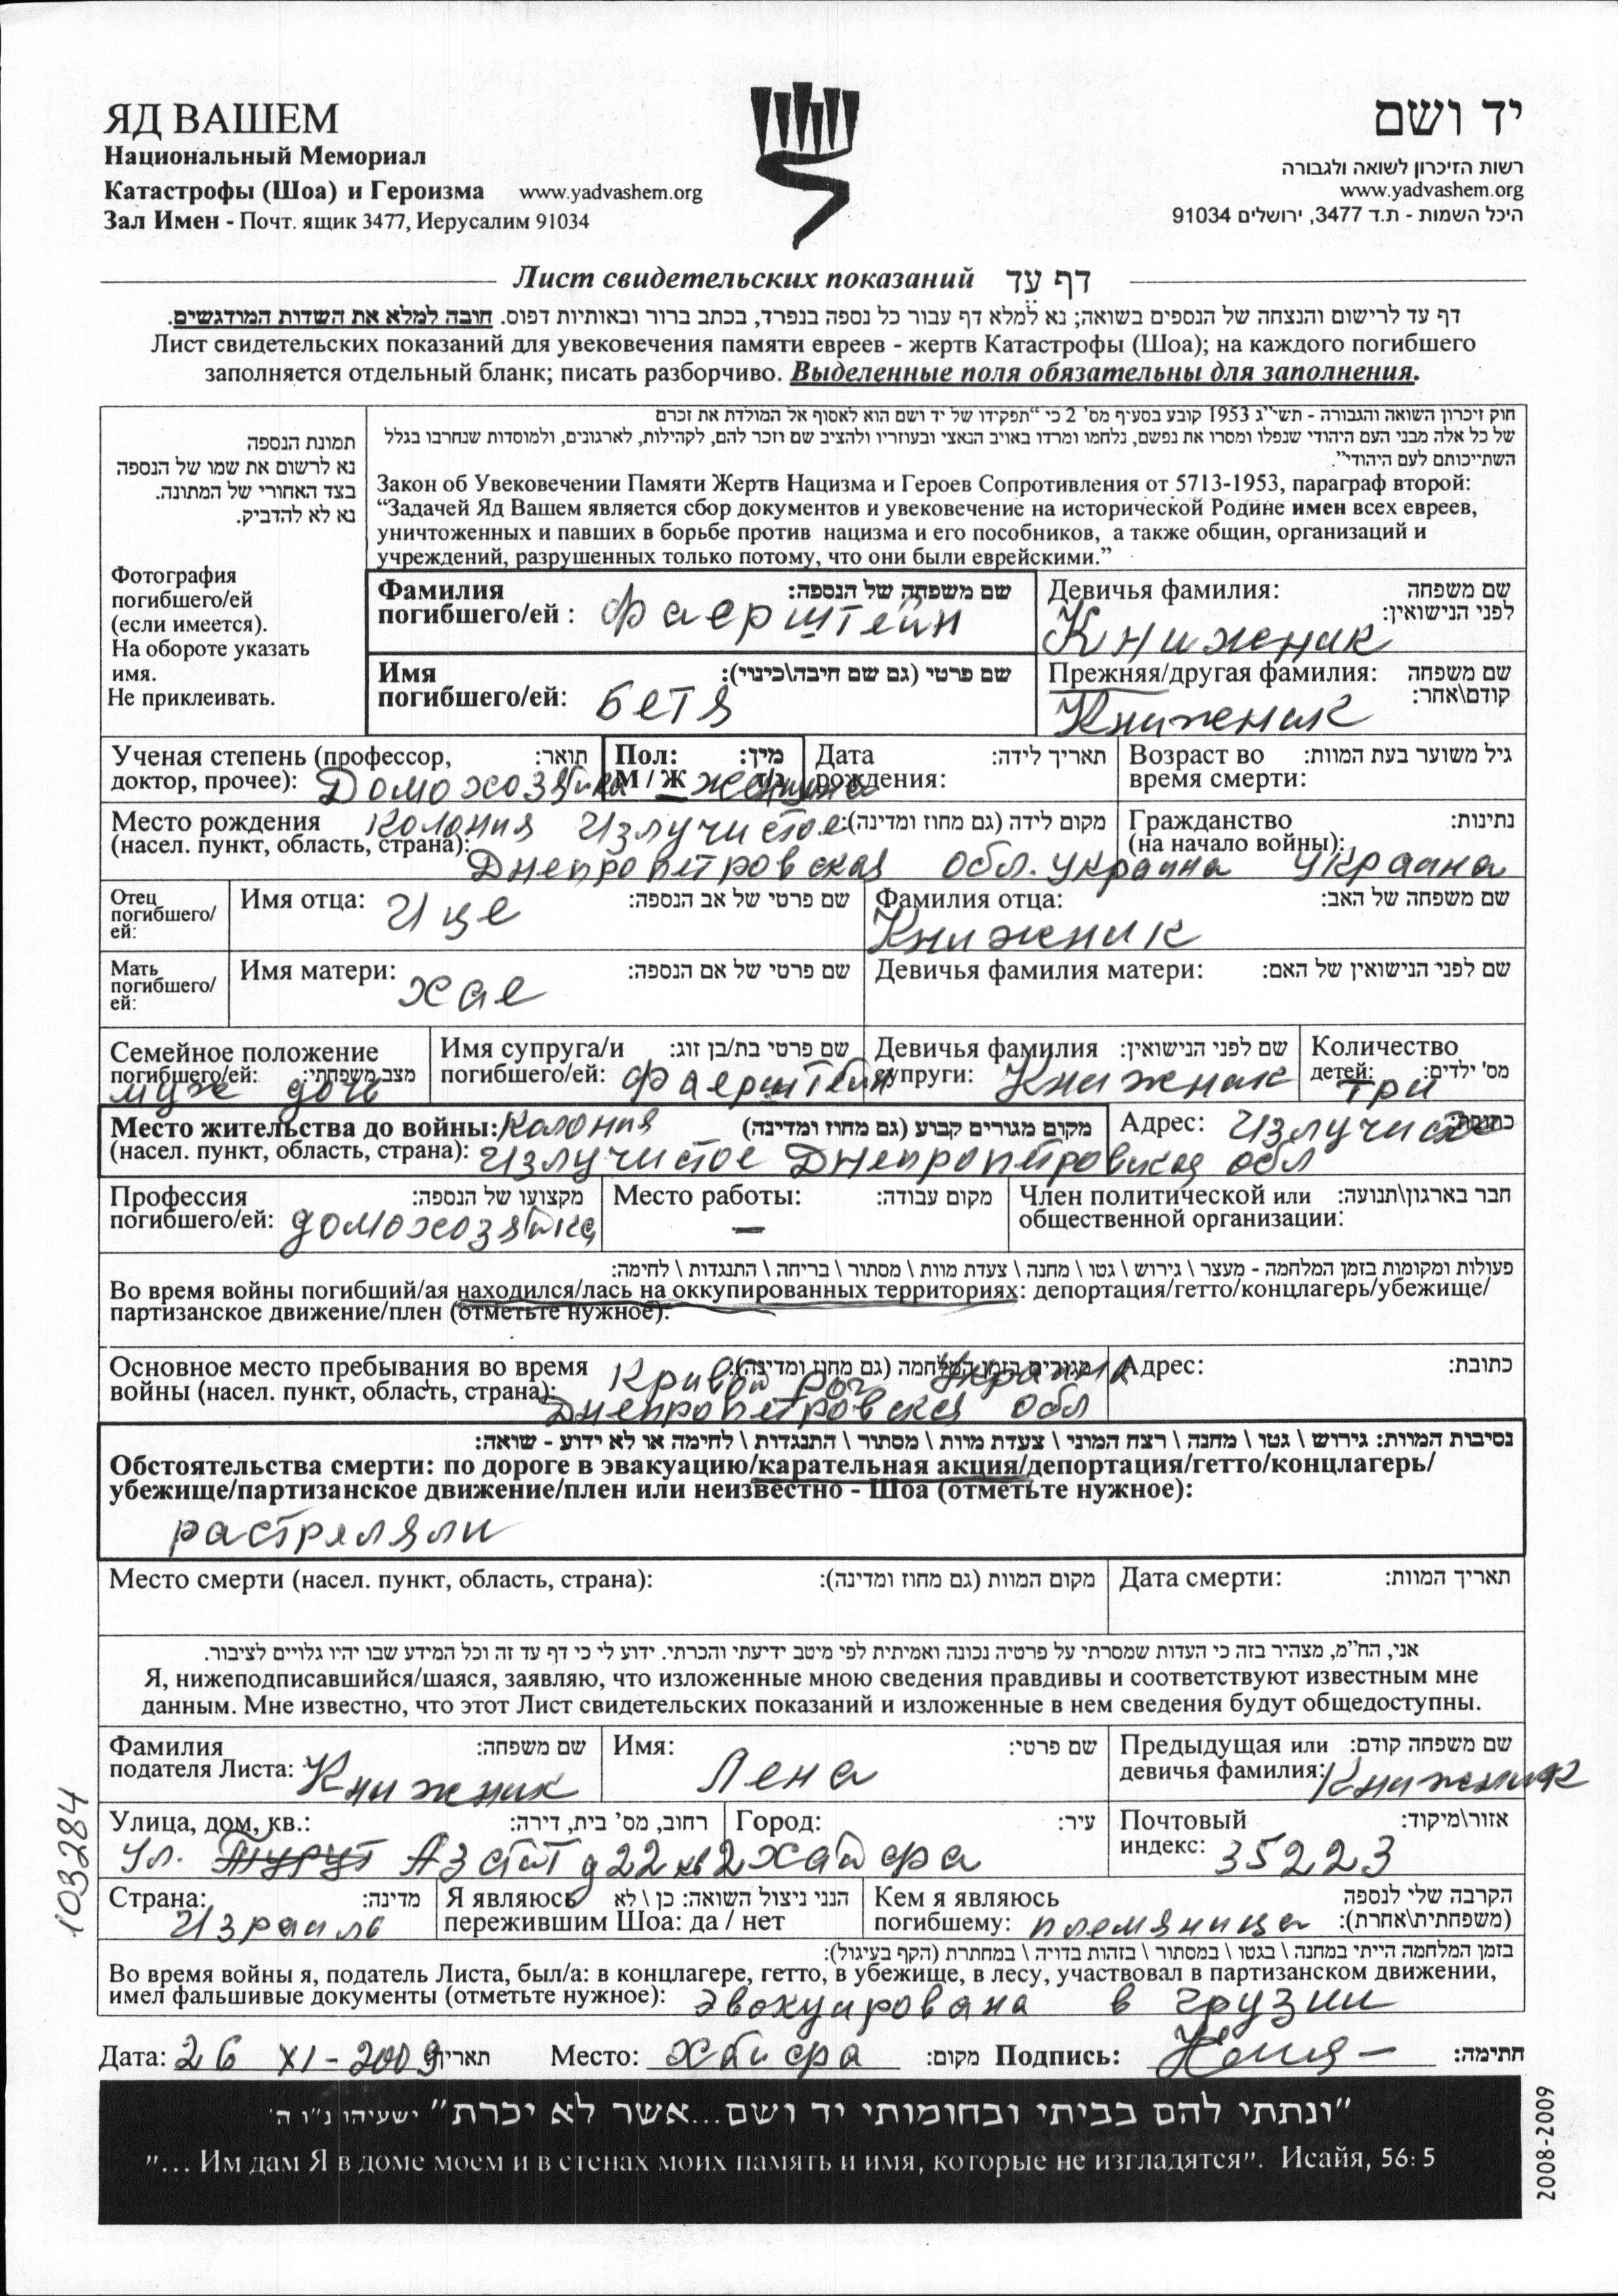 ЯД ВАШЕМ
Национальный Мемориал
Катастрофы (Шоа) и Героизма www.yadvashem.org
Зал Имен - Почт. ящик 3477, Иерусалим 91034
יד ושם
רשות הזיכרון לשואה ולגבורה
www.yadvashem.org
היכל השמות - ת.ד 3477, ירושלים 91034
Лист свидетельских показаний דף עד
דף עד לרישום והנצחה של הנספים בשואה; נא למלא דף עבור כל נספה בנפרד, בכתב ברור ובאותיות דפוס. חובה למלא את השדות המודגשים.
Лист свидетельских показаний для увековечения памяти евреев - жертв Катастрофы (Шоа); на каждого погибшего
заполняется отдельный бланк; писать разборчиво. Выделенные поля обязательны для заполнения.
תמונת הנספה
נא לרשום את שמו של הנספה
בצד האחורי של המתונה.
נא לא להדביק.
Фотография
погибшего/ей
(если имеется).
На обороте указать
имя.
Не приклеивать.
חוק זיכרון השואה והגבורה - תשי"ג 1953 קובע בסעיף מס' 2 כי "תפקידו של יד ושם הוא לאסוף אל המולדת את זכרם
של כל אלה מבני העם היהודי שנפלו ומסרו את נפשם, נלחמו ומרדו באויב הנאצי ובעוזריו ולהציב שם וזכר להם, לקהילות, לארגונים, ולמוסדות שנחרבו בגלל
השתייכותם לעם היהודי".
Закон об Увековечении Памяти Жертв Нацизма и Героев Сопротивления от 5713-1953, параграф второй:
“Задачей Яд Вашем является сбор документов и увековечение на исторической Родине имен всех евреев,
уничтоженных и павших в борьбе против нацизма и его пособников, а также общин, организаций и
учреждений, разрушенных только потому, что они были еврейскими.”
Фамилия שם משפחה של הנספה:
погибшего/ей : Фаерштейн
Девичья фамилия: שם משפחה
לפני הנישואין:
Книжник
Имя שם פרטי (גם שם חיבה\כינוי):
погибшего/ей: Бетя
Прежняя/другая фамилия: שם משפחה
קודם\אחר:
Книжник
Ученая степень (профессор, תואר:
доктор, прочее): Домохозяйка
Пол: מין:
М / Ж ז/נ женщина
Дата תאריך לידה:
рождения:
Возраст во גיל משוער בעת המוות:
время смерти:
Место рождения Колония Излучистое מקום לידה (גם מחוז ומדינה):
(насел. пункт, область, страна): Днепропетровская обл. Украина
Гражданство נתינות:
(на начало войны): Украина
Отец
погибшего/
ей:
Имя отца: Ице שם פרטי של אב הנספה:
Фамилия отца: שם משפחה של האב:
Книжник
Мать
погибшего/
ей:
Имя матери: Хае שם פרטי של אם הנספה:
Девичья фамилия матери: שם לפני הנישואין של האם:
Семейное положение
погибшего/ей: מצב משפחתי:
муж дочь
Имя супруга/и שם פרטי בת/בן זוג:
погибшего/ей: Фаерштейн
Девичья фамилия שם לפני הנישואין:
супруги: Книжник
Количество
детей: מס' ילדים:
три
Место жительства до войны: Колония מקום מגורים קבוע (גם מחוז ומדינה)
(насел. пункт, область, страна): Излучистое Днепропетровская обл
Адрес: Излучистое כתובת:
Профессия מקצועו של הנספה:
погибшего/ей: домохозяйка
Место работы: מקום עבודה:
—
Член политической или חבר בארגון\תנועה:
общественной организации:
פעולות ומקומות בזמן המלחמה - מעצר \ גירוש \ גטו \ מחנה \ צעדת מוות \ מסתור \ בריחה \ התנגדות \ לחימה:
Во время войны погибший/ая находился/лась на оккупированных территориях: депортация/гетто/концлагерь/убежище/
партизанское движение/плен (отметьте нужное):
Основное место пребывания во время Кривой рог Украина מגורים בזמן המלחמה (גם מחוז ומדינה):
войны (насел. пункт, область, страна): Днепропетровская обл
Адрес: כתובת:
נסיבות המוות: גירוש \ גטו \ מחנה \ רצח המוני \ צעדת מוות \ מסתור \ התנגדות \ לחימה או לא ידוע - שואה:
Обстоятельства смерти: по дороге в эвакуацию/карательная акция/депортация/гетто/концлагерь/
убежище/партизанское движение/плен или неизвестно - Шоа (отметьте нужное):
растреляли
Место смерти (насел. пункт, область, страна): מקום המוות (גם מחוז ומדינה):
Дата смерти: תאריך המוות:
אני, הח"מ, מצהיר בזה כי העדות שמסרתי על פרטיה נכונה ואמיתית לפי מיטב ידיעתי והכרתי. ידוע לי כי דף עד זה וכל המידע שבו יהיו גלויים לציבור.
Я, нижеподписавшийся/шаяся, заявляю, что изложенные мною сведения правдивы и соответствуют известным мне
данным. Мне известно, что этот Лист свидетельских показаний и изложенные в нем сведения будут общедоступны.
Фамилия שם משפחה:
податели Листа: Книжник
Имя: Лена שם פרטי:
Предыдущая или שם משפחה קודם:
девичья фамилия: Книжник
Улица, дом, кв.: רחוב, מס' בית, דירה:
Ул. Азстат д22 кв2
Город: עיר:
Хайфа
Почтовый אזור\מיקוד:
индекс: 35223
Страна: מדינה:
Израиль
Я являюсь הנני ניצול השואה: כן \ לא
пережившим Шоа: да / нет
Кем я являюсь הקרבה שלי לנספה
погибшему: племяница (משפחתית\אחרת):
בזמן המלחמה הייתי במחנה \ בגטו \ במסתור \ בזהות בדויה \ במחתרת (הקף בעיגול):
Во время войны я, податель Листа, был/а: в концлагере, гетто, в убежище, в лесу, участвовал в партизанском движении,
имел фальшивые документы (отметьте нужное): эвокуирована в грузии
Дата: 26 XI-2009 תאריך: Место: Хайфа מקום: Подпись: חתימה:
"ונתתי להם בביתי ובחומותי יד ושם...אשר לא יכרת" ישעיהו נ"ו ה'
"... Им дам Я в доме моем и в стенах моих память и имя, которые не изгладятся". Исайя, 56: 5
103284
2008-2009